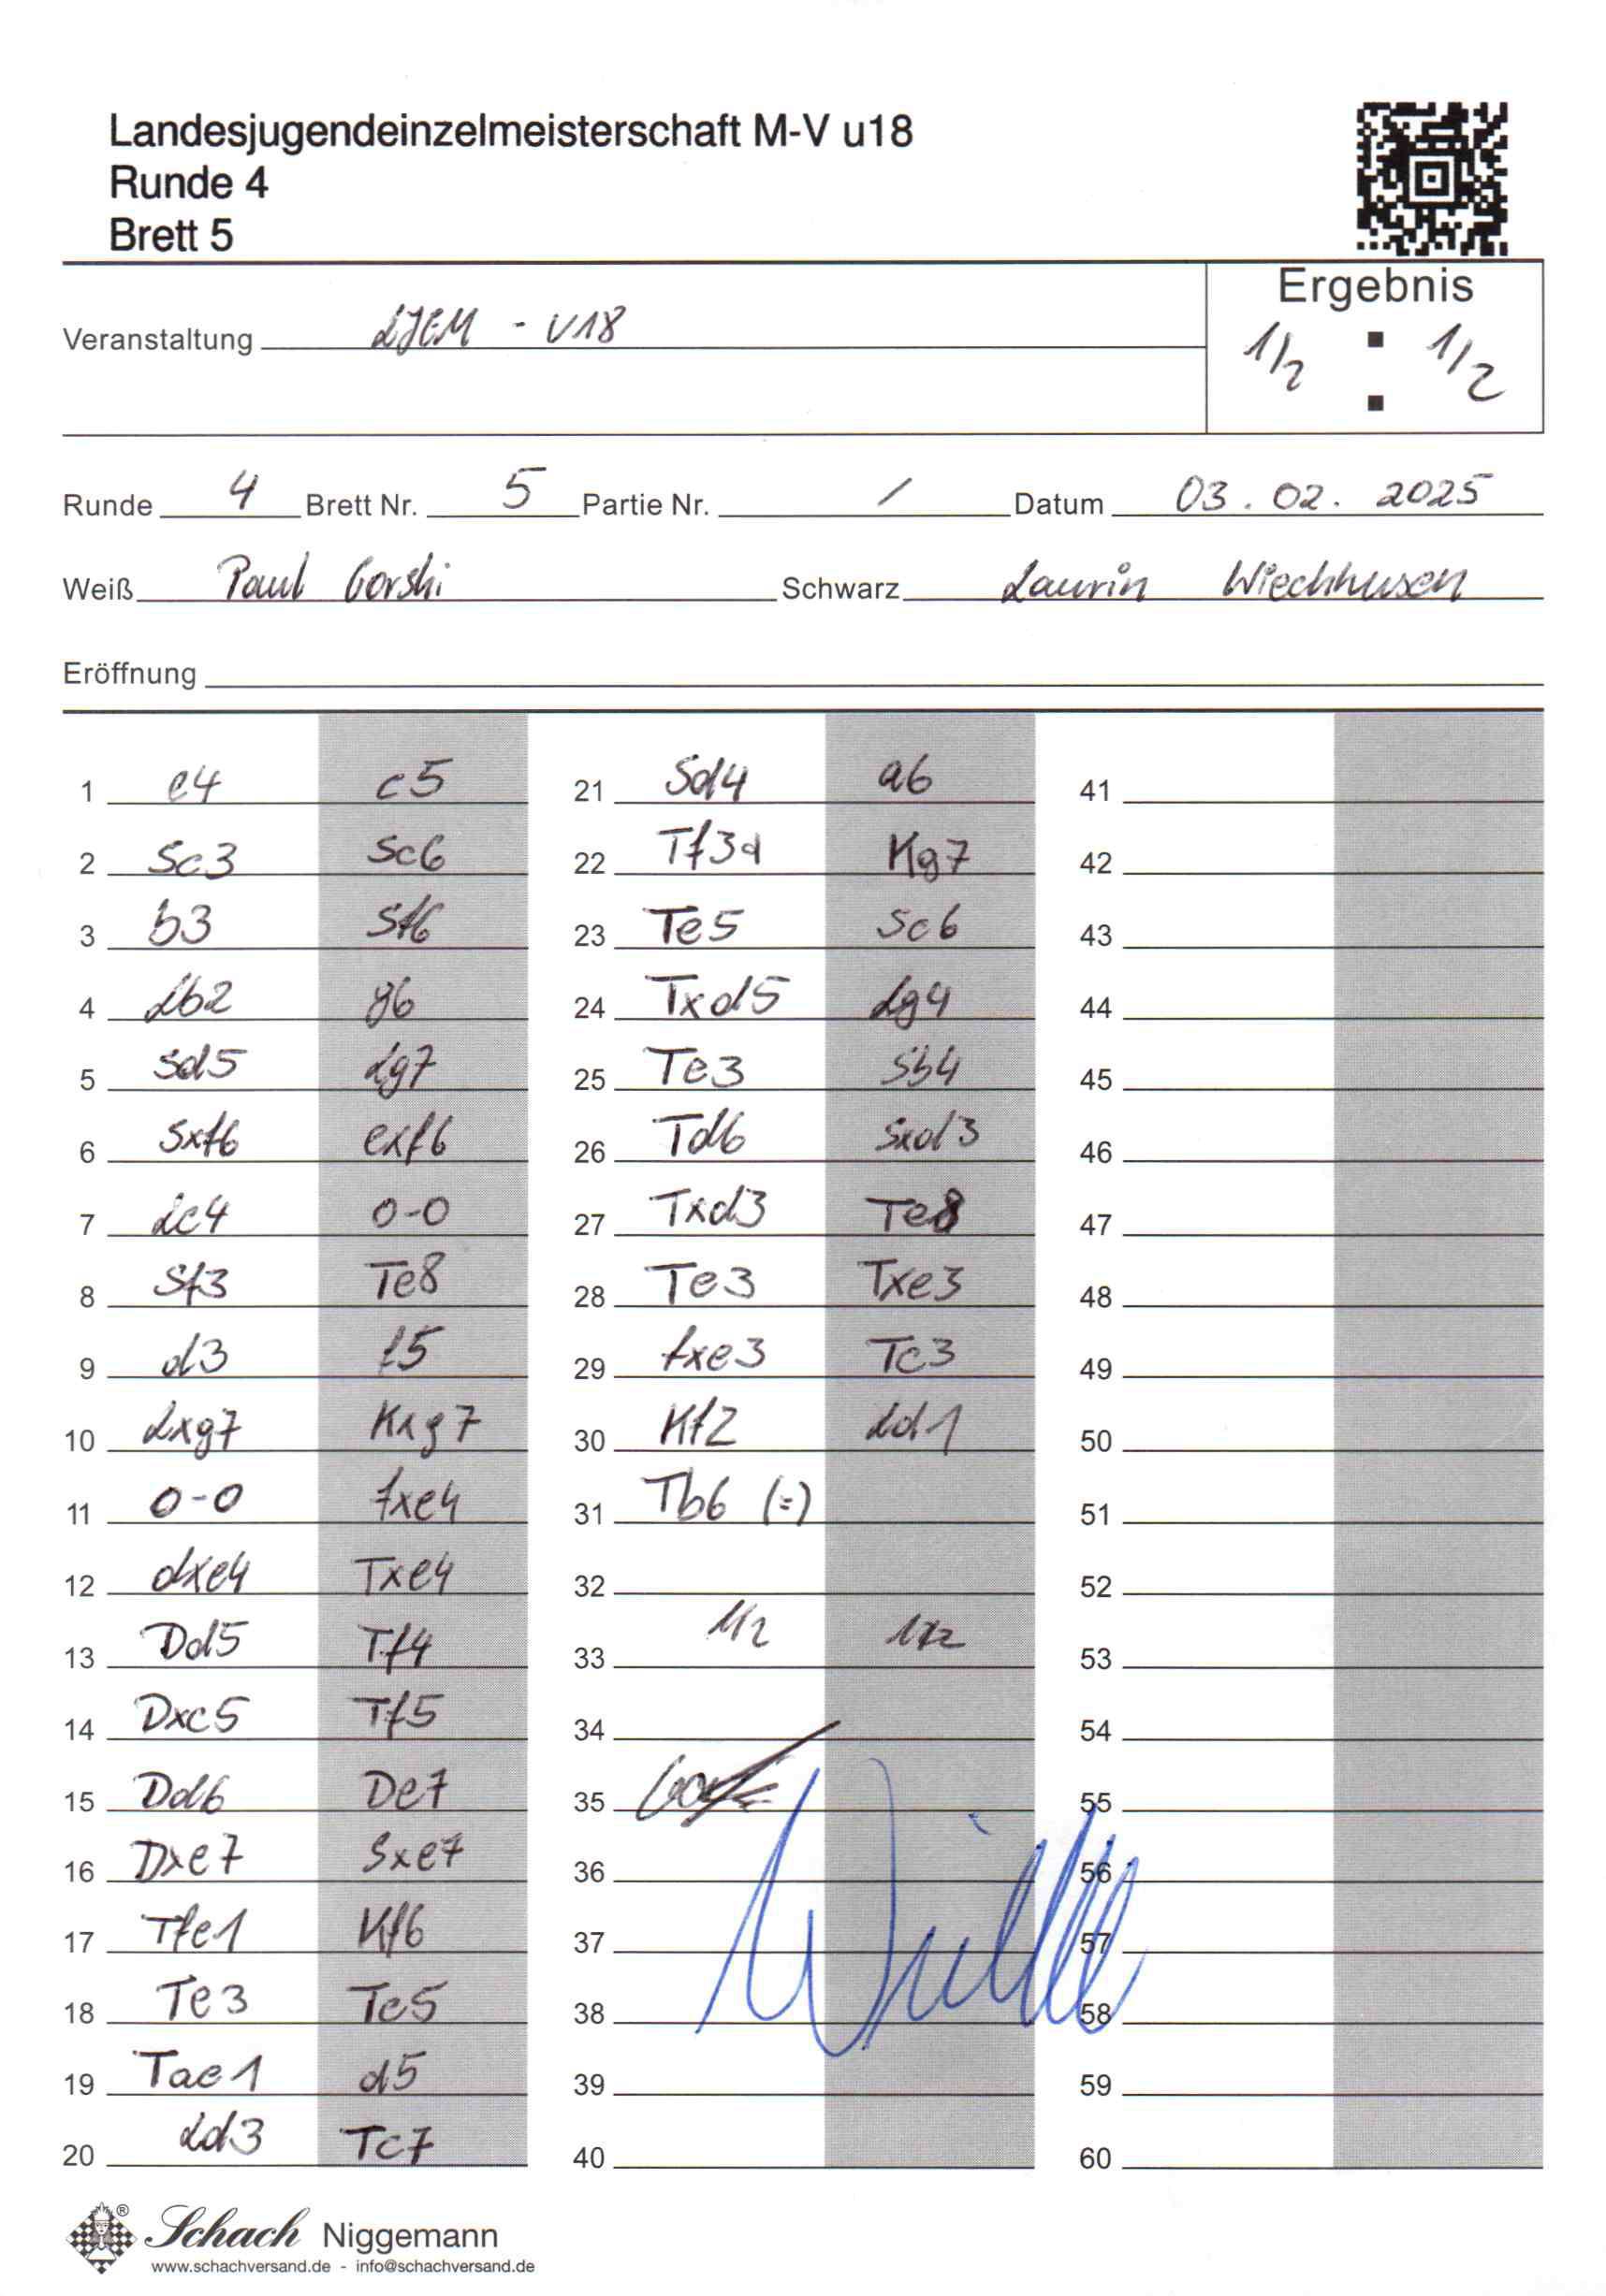 Landesjugendeinzelmeisterschaft M-V u18
Runde 4
Brett 5
Ergebnis
Veranstaltung LJEM - U18
1/2 : 1/2
Runde 4 Brett Nr. 5 Partie Nr. / Datum 03.02.2025
Weiß Paul Gorski Schwarz Laurin Wiechhusen
Eröffnung
1 e4 c5
2 Sc3 Sc6
3 b3 Sf6
4 Lb2 g6
5 Sd5 Lg7
6 Sxf6 exf6
7 Lc4 0-0
8 Sf3 Te8
9 d3 f5
10 Lxg7 Kxg7
11 0-0 fxe4
12 dxe4 Txe4
13 Dd5 Tf4
14 Dxc5 Tf5
15 Dd6 De7
16 Dxe7 Sxe7
17 Tfe1 Kf6
18 Te3 Tc5
19 Tae1 d5
20 Ld3 Tc7
21 Sd4 a6
22 Tf3+ Kg7
23 Te5 Sc6
24 Txd5 Lg4
25 Te3 Sb4
26 Td6 Sxd3
27 Txd3 Te8
28 Te3 Txe3
29 fxe3 Tc3
30 Kf2 Ld1
31 Tb6 (=)
32
33 1/2 1/2
34
35
36
37
38
39
40
41
42
43
44
45
46
47
48
49
50
51
52
53
54
55
56
57
58
59
60
Schach Niggemann ®
www.schachversand.de - info@schachversand.de